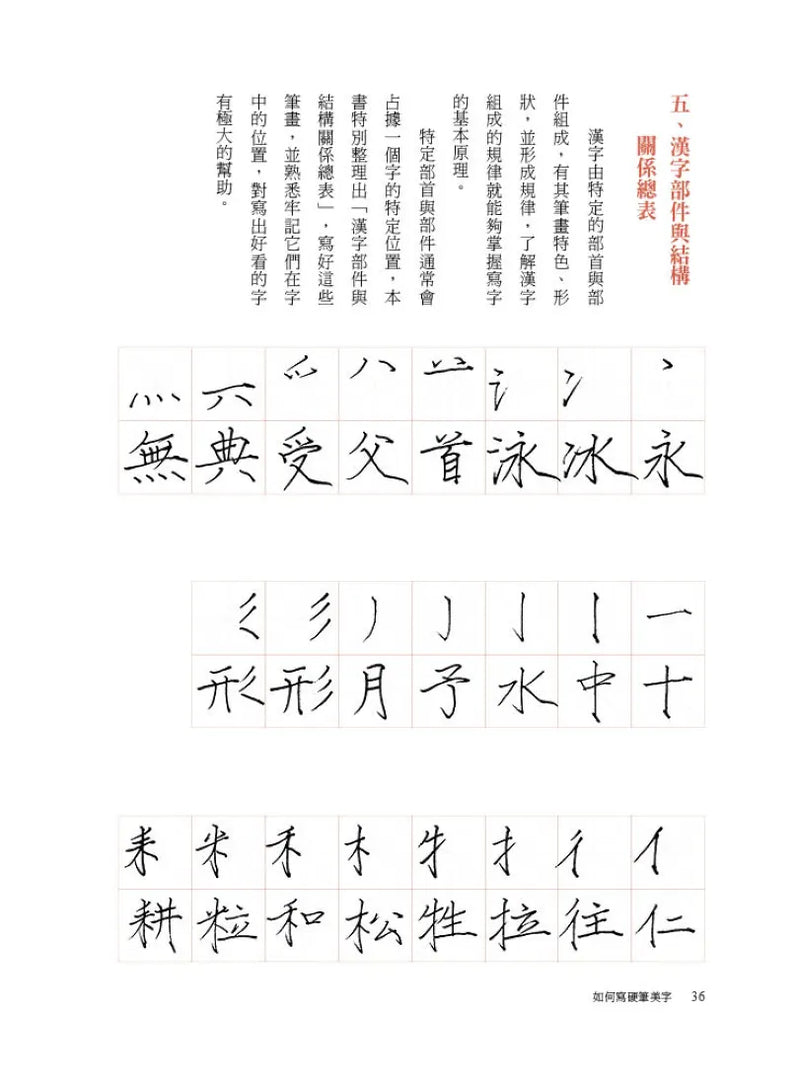 五、漢字部件與結構
關係總表
漢字由特定的部首與部
件組成，有其筆畫特色、形
狀，並形成規律，了解漢字
組成的規律就能夠掌握寫字
的基本原理。
特定部首與部件通常會
占據一個字的特定位置，本
書特別整理出「漢字部件與
結構關係總表」，寫好這些
筆畫，並熟悉牢記它們在字
中的位置，對寫出好看的字
有極大的幫助。
丶 冫 氵 䒑 八 爫 灬
永 冰 泳 首 父 受 典 無
一 丨 亅 亅 丿 彡
十 中 水 予 月 形 形
亻 彳 扌 牜 木 禾 米 耒
仁 往 拉 牲 松 和 粒 耕
如何寫硬筆美字 36